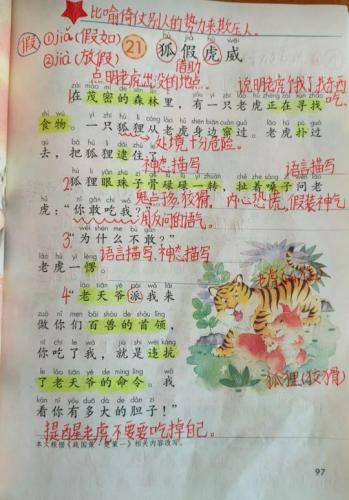 比喻倚仗别人的势力来欺压人。
假 ①jiǎ(假如)
②jià(放假)
21 狐假虎威
借助
点明老虎出没的地点。 说明老虎饿了找东西吃。
在茂密的森林里，有一只老虎正在寻找
食物。一只狐狸从老虎身边窜过。老虎扑过
去，把狐狸逮住了。 处境十分危险。
神态描写 语言描写
2 狐狸眼珠子骨碌碌一转，扯着嗓子问老
鬼点子多，狡猾， 内心恐慌，假装神气
虎：“你敢吃我？” 用反问的语气
3 “为什么不敢？”
语言描写，神态描写
老虎一愣。
4 “老天爷派我来
做你们百兽的首领，
你吃了我，就是违抗
了老天爷的命令。我
看你有多大的胆子！”
提醒老虎不要吃掉自己。
狐狸(狡猾)
本文根据《战国策·楚策一》相关内容改写。
97